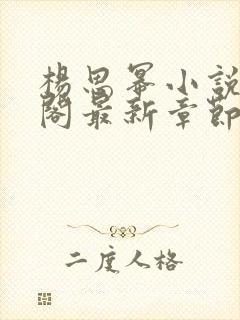 楊思冪小説
閣最新章節
二度人格